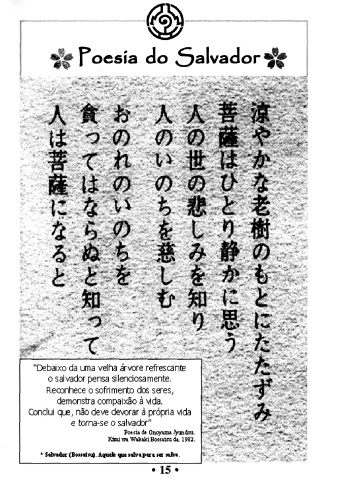 Poesia do Salvador
涼やかな老樹のもとにたたずみ
菩薩はひとり静かに思う
人の世の悲しみを知り
人のいのちを慈しむ
おのれのいのちを
貪ってはならぬと知って
人は菩薩になると
"Debaixo da uma velha árvore refrescante
o salvador pensa silenciosamente.
Reconhece o sofrimento dos seres,
demonstra compaixão à vida.
Conclui que, não deve devorar à própria vida
e torna-se o salvador"
Poesia de Onoyama Jyundou.
Kimi wa Wakaki Bossatsu da, 1982.
* Salvador (Bossatsu). Aquele que salva para ser salvo.
• 15 •